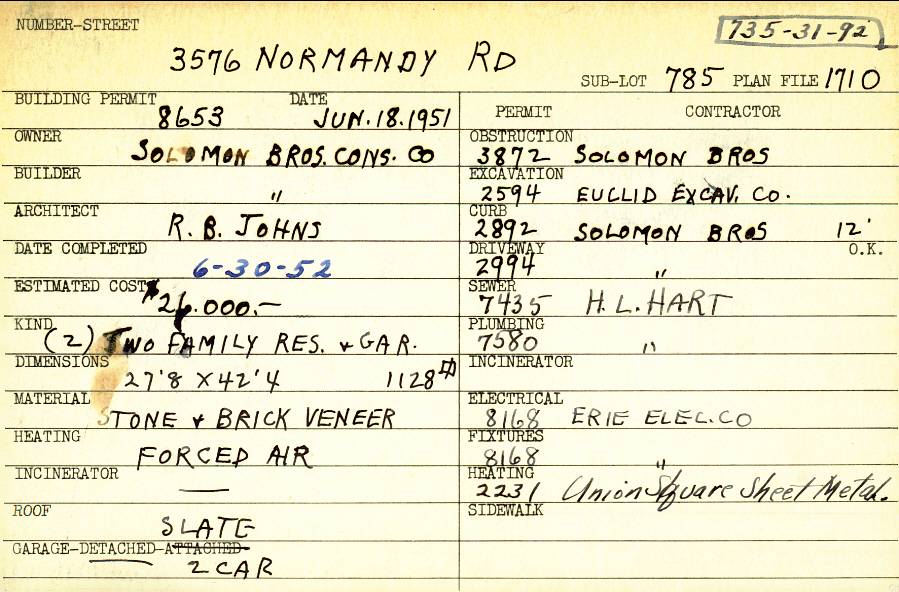 NUMBER-STREET
735-31-92
3576 NORMANDY RD
SUB-LOT 785 PLAN FILE 1710
BUILDING PERMIT DATE
8653 JUN.18.1951
OWNER
SOLOMON BROS. CONS. CO
BUILDER
"
ARCHITECT
R. B. JOHNS
DATE COMPLETED
6-30-52
ESTIMATED COST
$26.000.—
KIND
(2) TWO FAMILY RES. & GAR.
DIMENSIONS
27'8 X 42'4 1128
MATERIAL
STONE & BRICK VENEER
HEATING
FORCED AIR
INCINERATOR
—
ROOF
SLATE
GARAGE-DETACHED-ATTACHED-
2 CAR
PERMIT CONTRACTOR
OBSTRUCTION
3872 SOLOMON BROS
EXCAVATION
2594 EUCLID EXCAV. CO.
CURB
2892 SOLOMON BROS 12'
DRIVEWAY O.K.
2994 "
SEWER
7435 H. L. HART
PLUMBING
7580 "
INCINERATOR
ELECTRICAL
8168 ERIE ELEC. CO
FIXTURES
8168 "
HEATING
2231 Union Square Sheet Metal.
SIDEWALK